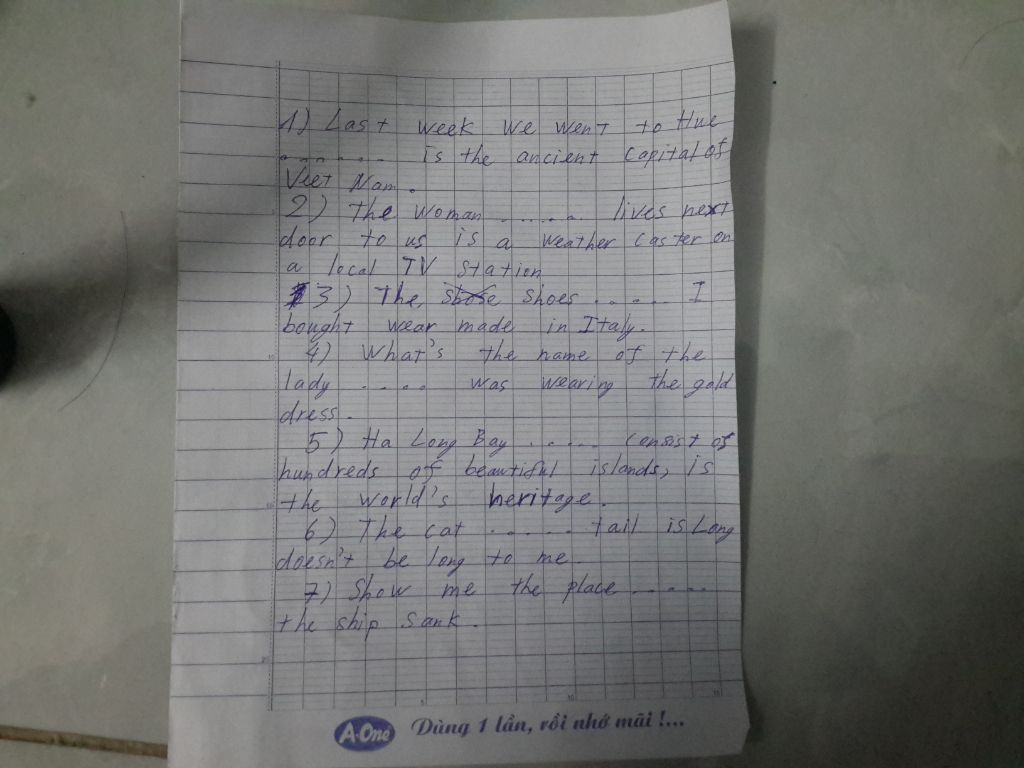 1) Last week we went to Hue
....... is the ancient Capital of
Veet Nam.
2) The woman ...... lives next
door to us is a weather caster on
a local TV station
3) The shose shoes ...... I
bought wear made in Italy.
4) What's the name of the
lady .... was wearing the gold
dress.
5) Ha Long Bay ..... Consist of
hundreds of beautiful islands, is
the world's heritage.
6) The cat ...... tail is Long
doesn't be long to me.
7) Show me the place .....
the ship sank.
10
15
20
5
10
15
A-One
Dùng 1 lần, rồi nhớ mãi !...